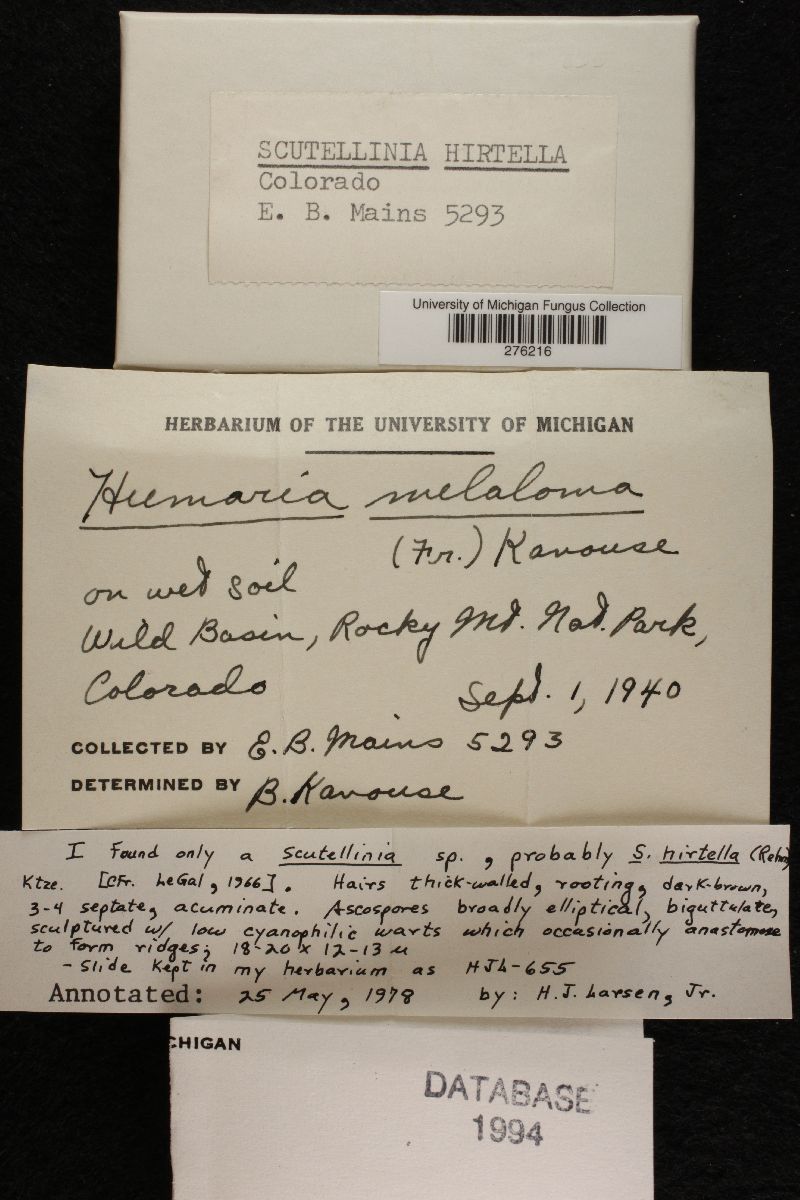 SCUTELLINIA HIRTELLA
Colorado
E. B. Mains 5293
University of Michigan Fungus Collection
276216
HERBARIUM OF THE UNIVERSITY OF MICHIGAN
Humaria melaloma
(Fr.) Kanouse
on wet soil
Wild Basin, Rocky Mt. Nat. Park,
Colorado Sept. 1, 1940
COLLECTED BY E. B. Mains 5293
DETERMINED BY B. Kanouse
I Found only a Scutellinia sp., probably S. hirtella (Rehm)
Ktze. [CFr. LeGal, 1966]. Hairs thick-walled, rooting, dark-brown,
3-4 septate, acuminate. Ascospores broadly elliptical, biguttulate,
sculptured w/ low cyanophilic warts which occasionally anastomose
to form ridges; 18-20 x 12-13 u
- Slide kept in my herbarium as HJL-655
Annotated: 25 May, 1978 by: H.J. Larsen, Jr.
CHIGAN
DATABASE
1994